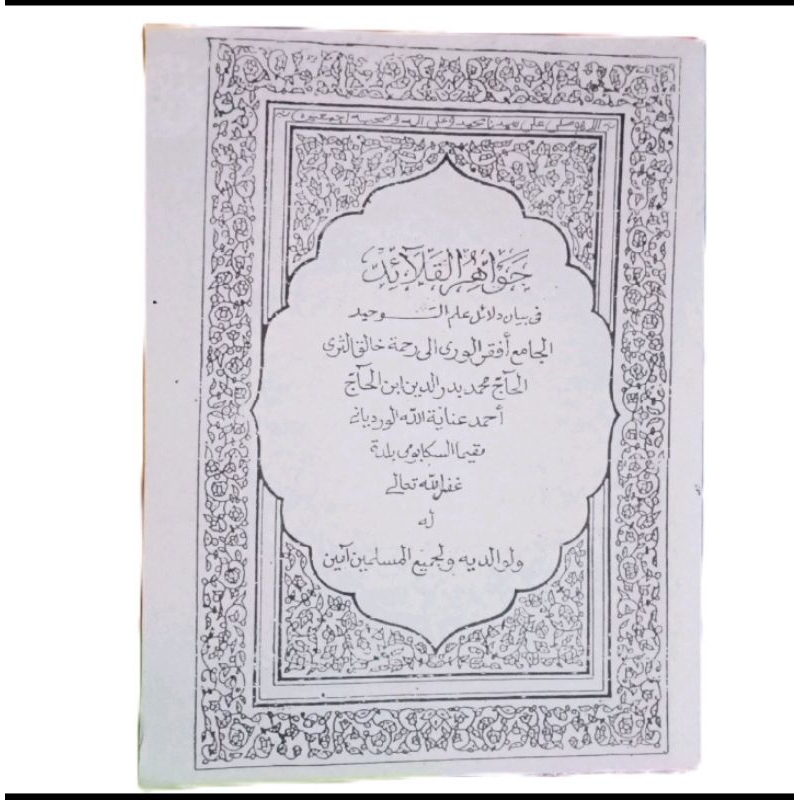 اللهم صلى على سيدنا محمد وعلى اله وصحبه اجمعين
جَوَاهِرُ الْقَلَآئِدِ
في بيان دلائل علم التوحيد
الجامع أفقر الورى الى رحمة خالق الثرى
الحآجّ محمد بدر الدين ابن الحآجّ
أحمد عناية الله الوردياني
مقيما السكابومي بلدة
غفر الله تعالى
له
ولوالديه ولجميع المسلمين آمين